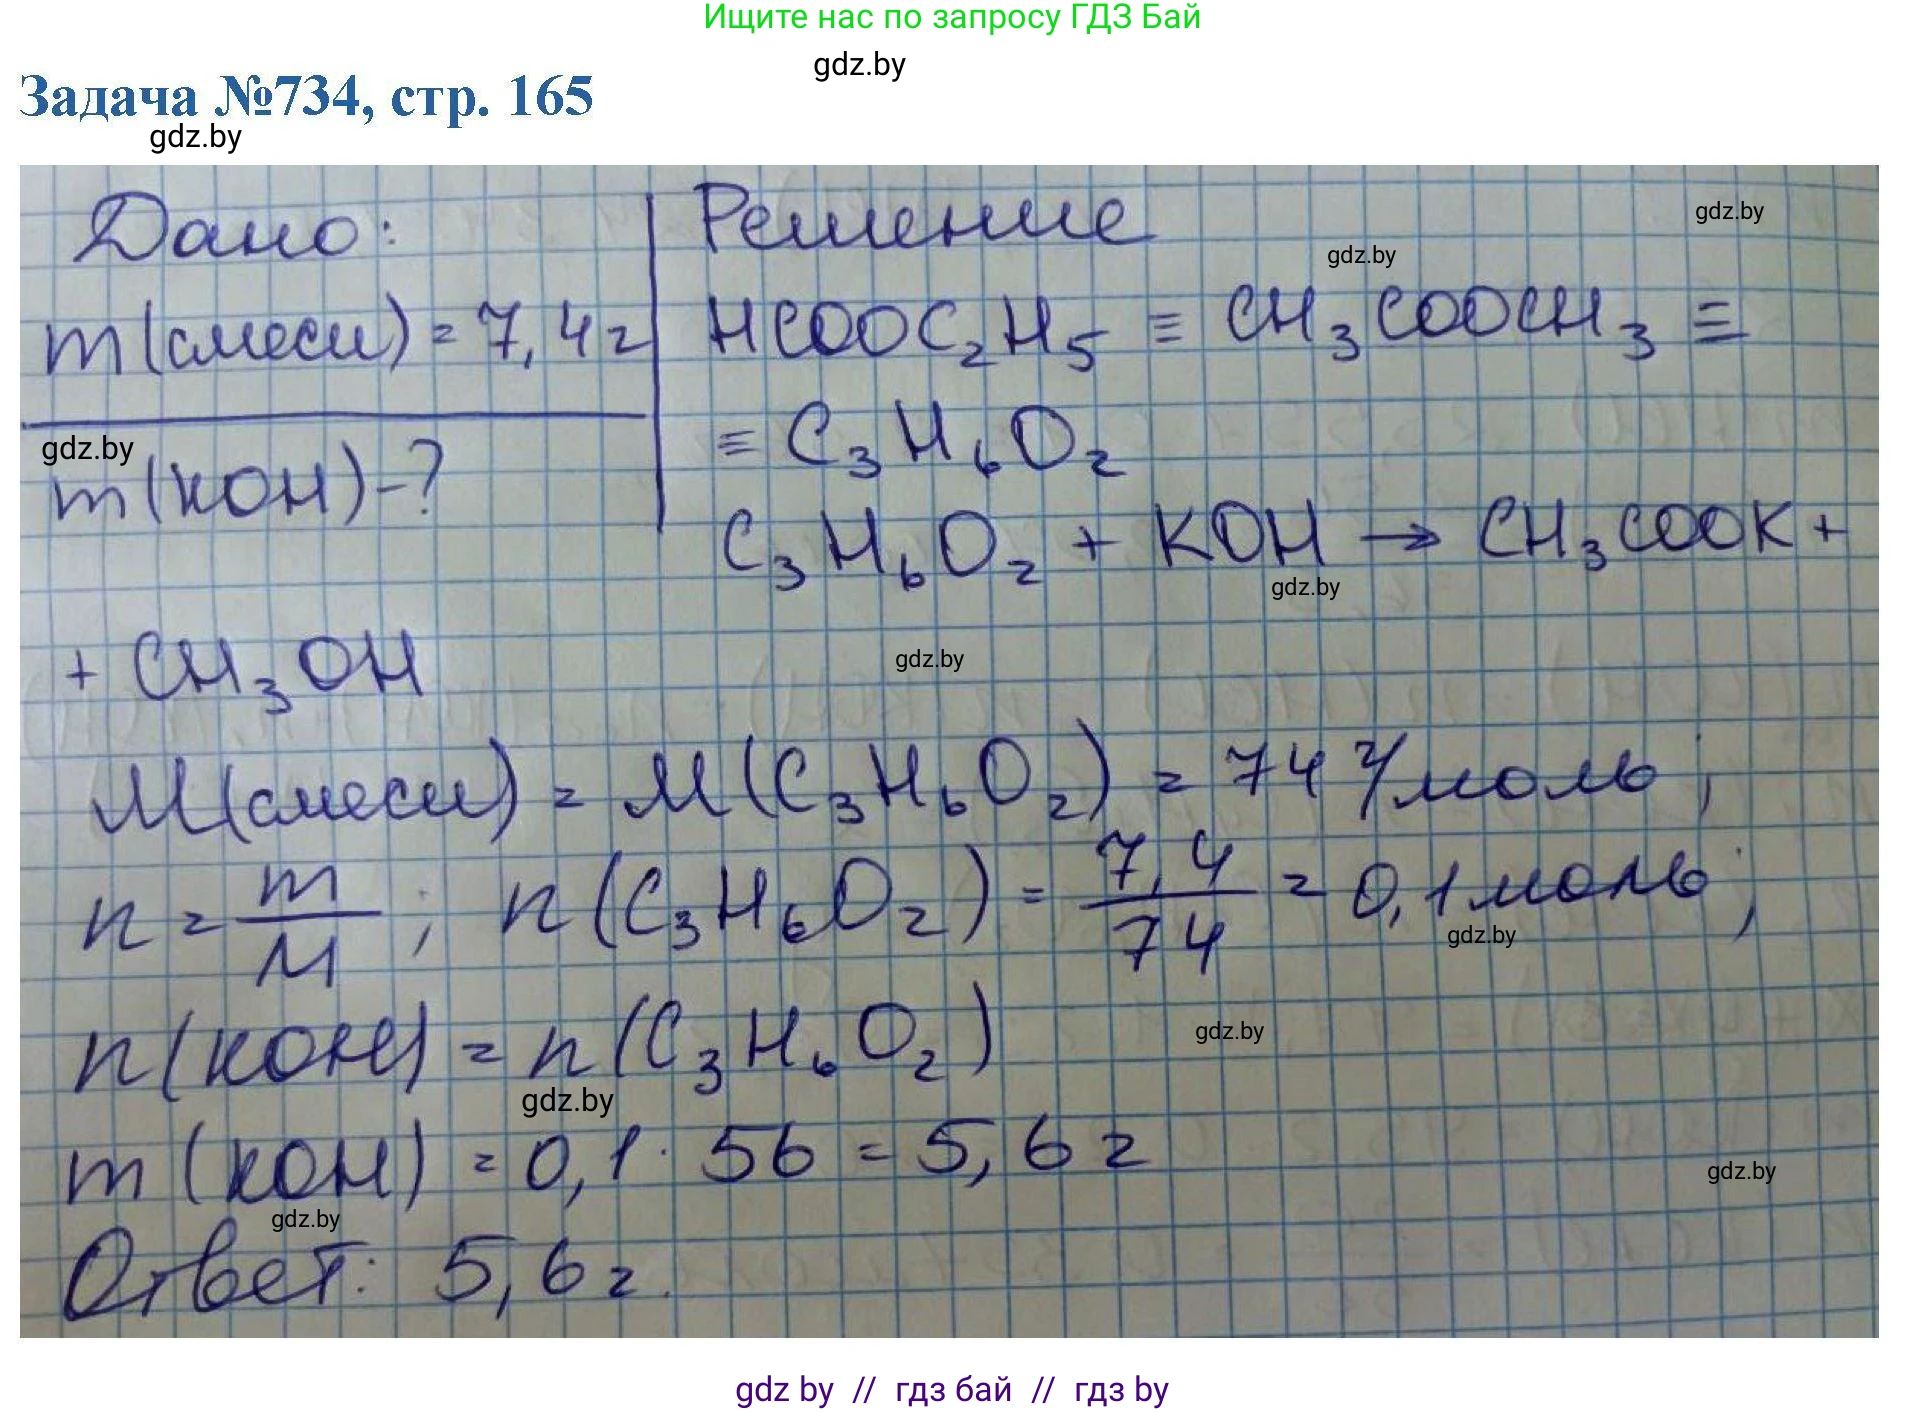 Ищите нас по запросу ГДЗ Бай
gdz.by
Задача №734, стр. 165
gdz.by
Дано:
Решение
gdz.by
gdz.by
m(смеси) = 7,4 г
HCOOC₂H₅ ≡ CH₃COOCH₃ ≡
≡ C₃H₆O₂
gdz.by
m(KOH) - ?
C₃H₆O₂ + KOH → CH₃COOK +
gdz.by
+ CH₃OH
gdz.by
M(смеси) = M(C₃H₆O₂) = 74 г/моль;
n = m/M; n(C₃H₆O₂) = 7,4/74 = 0,1 моль;
gdz.by
n(KOH) = n(C₃H₆O₂)
gdz.by
gdz.by
m(KOH) = 0,1 · 56 = 5,6 г
gdz.by
gdz.by
Ответ: 5,6 г.
gdz by // гдз бай // гдз by